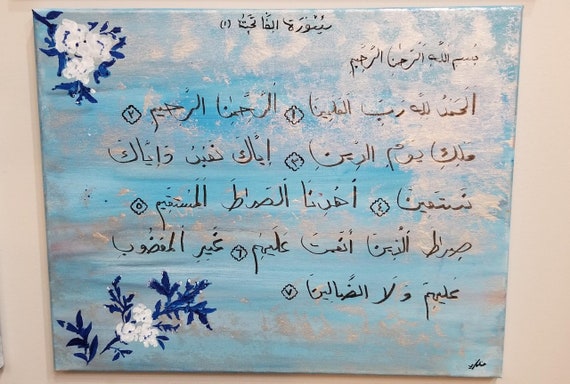 سُورَةُ الفَاتِحَة (١)
بِسْمِ اللَّهِ الرَّحْمٰنِ الرَّحِيمِ
الحَمْدُ للَّهِ رَبِّ العَٰلَمِينَ ١ الرَّحْمٰنِ الرَّحِيمِ ٢
مَلِكِ يَوْمِ الدِّينِ ٣ إِيَّاكَ نَعْبُدُ وَإِيَّاكَ
نَسْتَعِينُ ٤ اهْدِنَا الصِّرَاطَ المُسْتَقِيمَ ٥
صِرَاطَ الَّذِينَ أَنْعَمْتَ عَلَيْهِمْ ٦ غَيْرِ المَغْضُوبِ
عَلَيْهِمْ وَلَا الضَّالِّينَ ٧